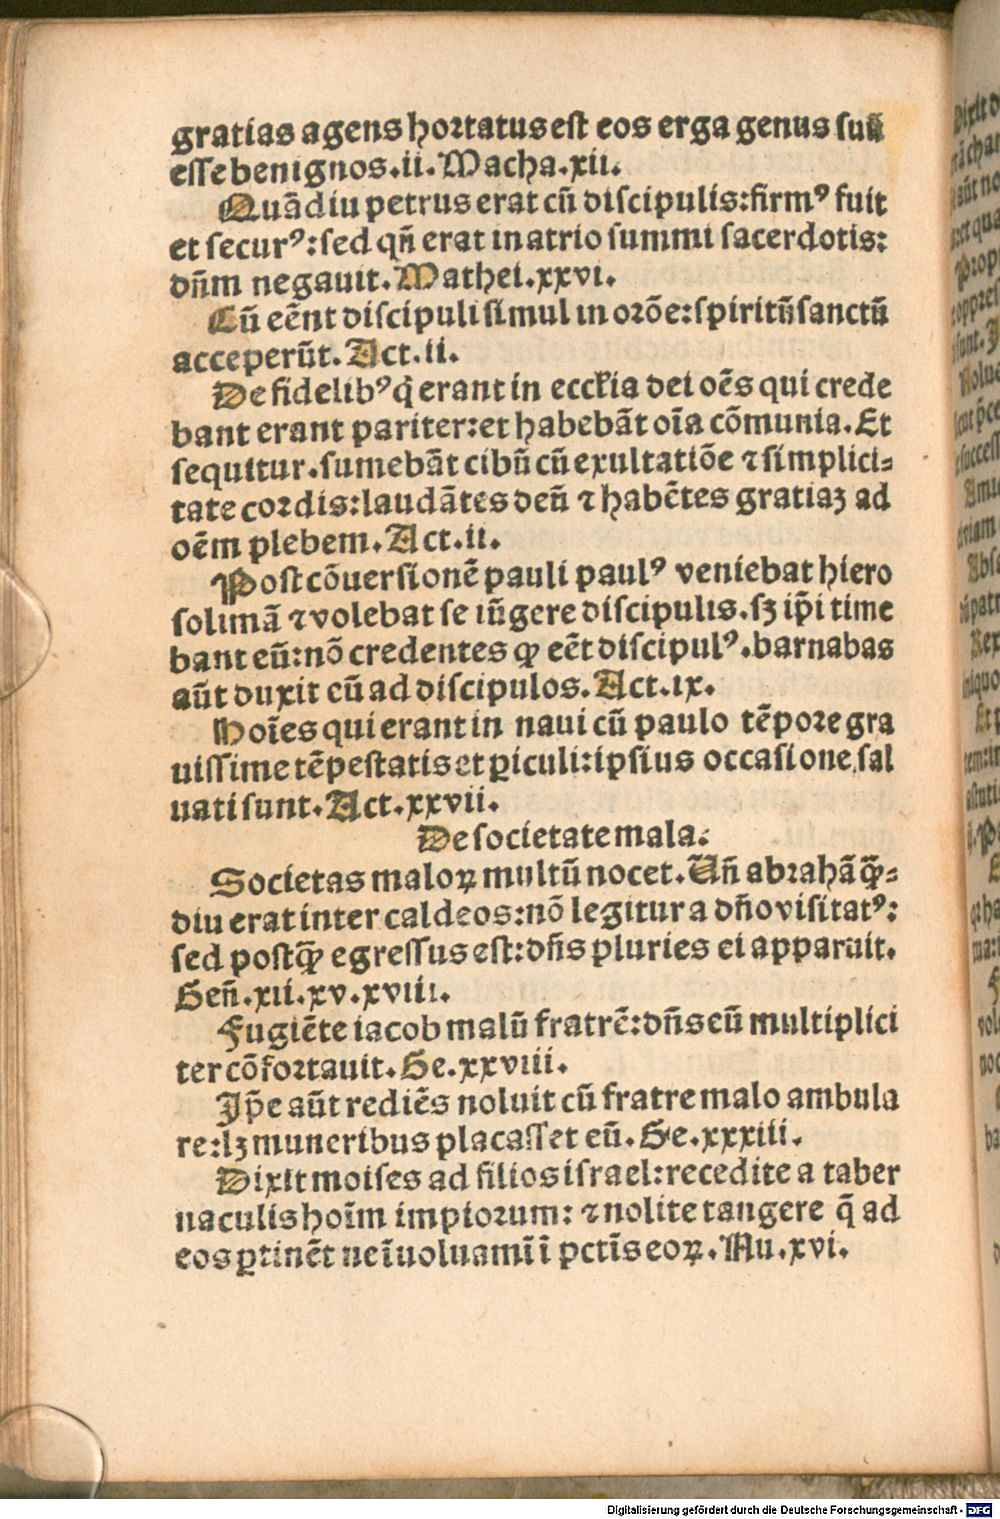 gratias agens hortatus est eos erga genus suū
esse benignos.ii.Macha.xii.
Quādiu petrus erat cū discipulis:firmꝰ fuit
et securꝰ:sed qñ erat in atrio summi sacerdotis:
dñm negauit.Mathei.xxvi.
Cū eēnt discipuli simul in orōe:spiritū sanctū
acceperūt.Act.ii.
De fidelibꝰ q̇ erant in ecclīa dei oēs qui crede
bant erant pariter:et habebāt oīa cōmunia.Et
sequitur.sumebāt cibū cū exultatiōe ⁊ simplici⸗
tate cordis:laudātes deū ⁊ habētes gratiaꝫ ad
oēm plebem.Act.ii.
Post cōuersionē pauli paulꝰ veniebat hiero
solimā ⁊ volebat se iūgere discipulis.sꝫ ip̄i time
bant eū:nō credentes ꝙ eēt discipulꝰ.barnabas
aūt duxit eū ad discipulos.Act.ix.
Hoīes qui erant in naui cū paulo tēpore gra
uissime tēpestatis et ꝑiculi:ipsius occasione sal
uati sunt.Act.xxvii.
De societate mala.
Societas maloꝝ multū nocet.Uñ abrahā ꝙ̄⸗
diu erat inter caldeos:nō legitur a dño visitatꝰ:
sed postꝙ̄ egressus est:dñs pluries ei apparuit.
Geñ.xii.xv.xviii.
Fugiēte iacob malū fratrē:dñs eū multiplici
ter cōfortauit.Ge.xxviii.
Ip̄e aūt rediēs noluit cū fratre malo ambula
re:lꝫ muneribus placasset eū.Ge.xxxiii.
Dixit moises ad filios israel:recedite a taber
naculis hoīm impiorum: ⁊ nolite tangere q̄ ad
eos ꝑtinēt ne īuoluamī ī pctīs eoꝝ.Nu.xvi.
Digitalisierung gefördert durch die Deutsche Forschungsgemeinschaft - DFG